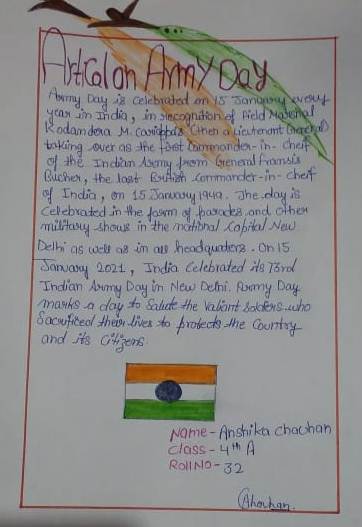 Artical on Army Day
Army Day is celebrated on 15 January every
year in India, in recognition of Field Marshal
Kodandera M. Cariappa's (then a Lieutenant General)
taking over as the first Commander-in-Cheif
of the Indian Army from General Fransis
Bucher, the last British commander-in-cheif
of India, on 15 January 1949. The day is
Celebrated in the form of parades and other
military shows in the national capital New
Delhi as well as in all headquaters. On 15
January 2021, India celebrated its 73rd
Indian Army Day in New Delhi. Army Day
marks a day to salute the valiant soldiers who
Sacrificed their lives to protects the Country
and its Citizens.
Name - Anshika chauhan
Class - 4th A
Roll NO - 32